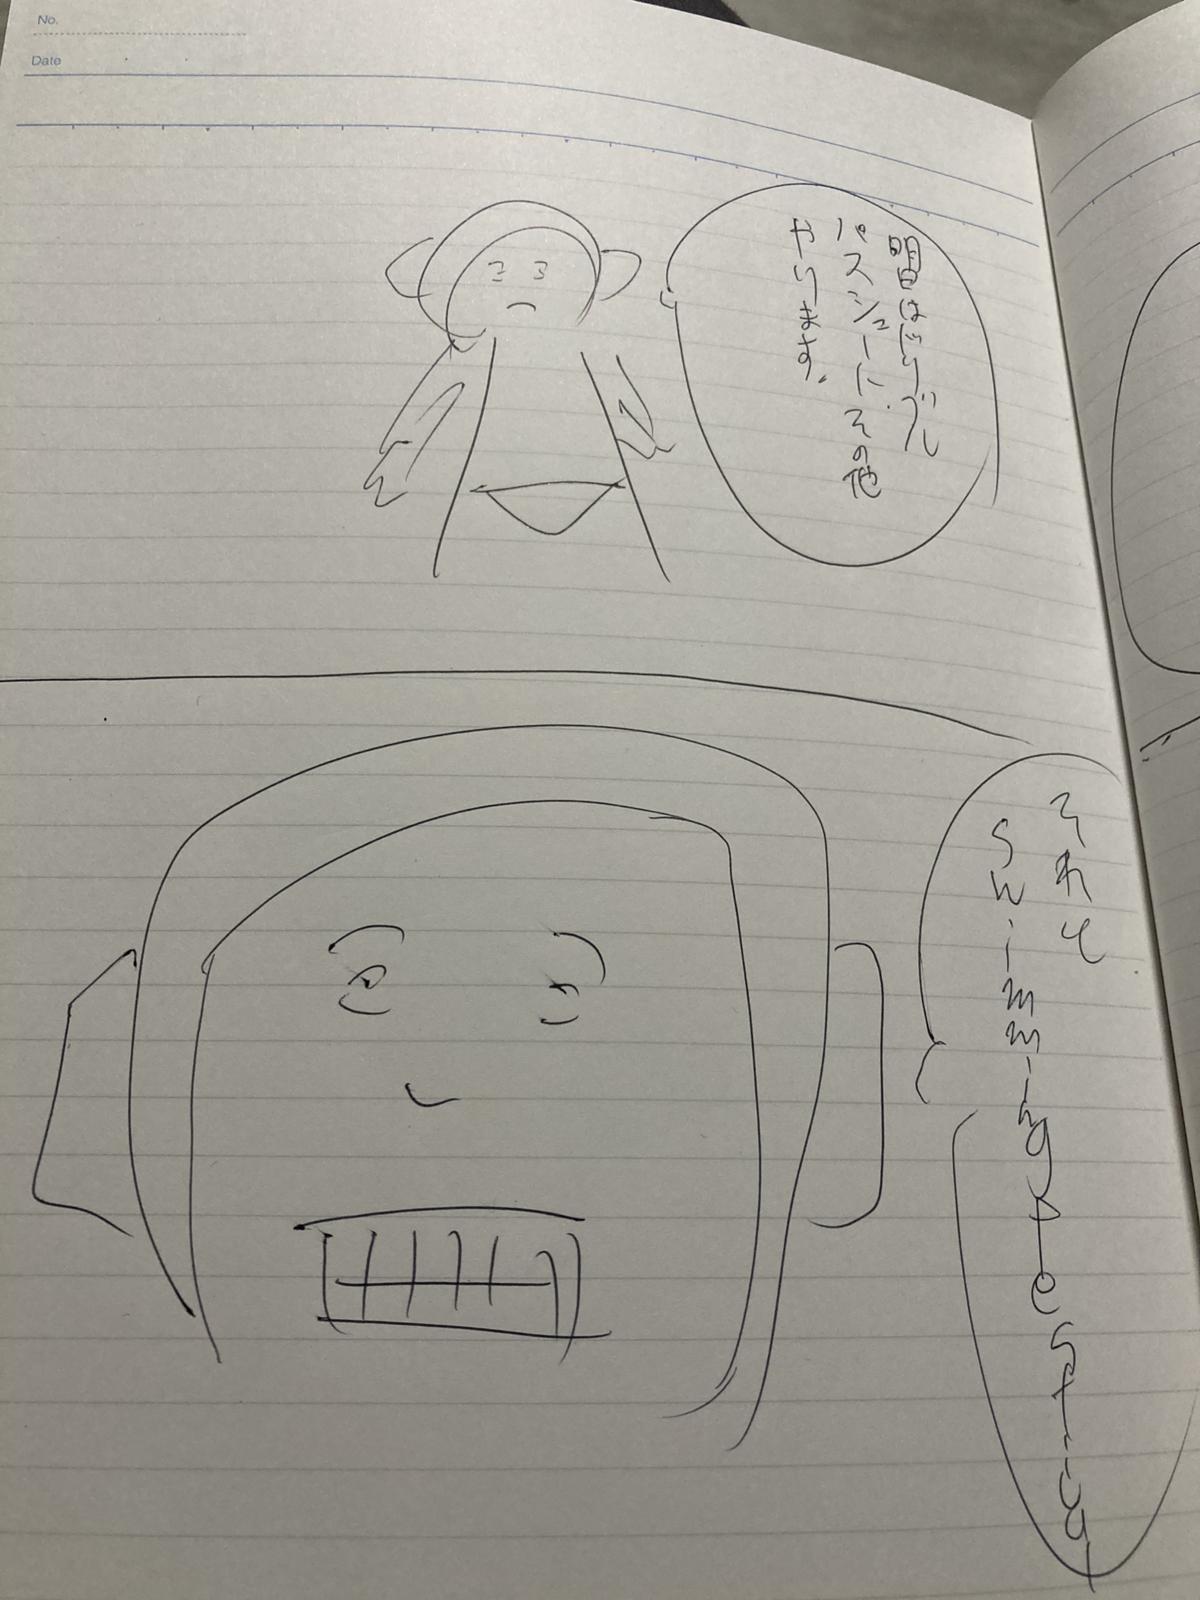 No.
Date
明日はドリブル
パスシュートその他
やります。
それと
swimming testing